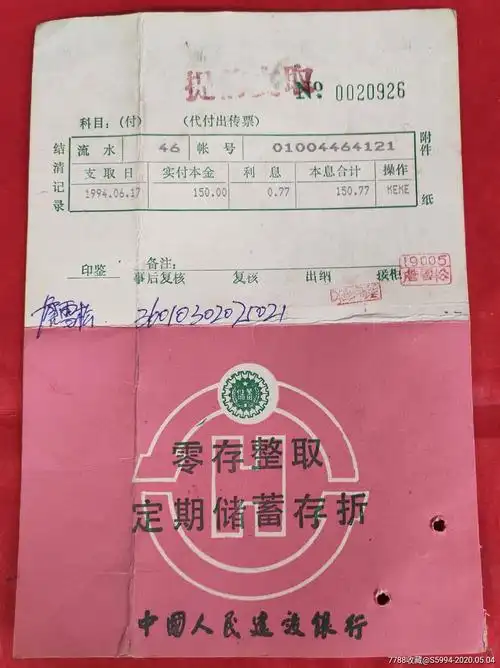 提前支取
№ 0020926
科目：(付) (代付出传票)
附件 纸
结清记录
流水 46 帐号 01004464121
支取日 实付本金 利息 本息合计 操作
1994.06.17 150.00 0.77 150.77 KEKE
印鉴 备注：
事后复核 复核 出纳 接柜
19005
詹雪松
詹雪松 36010302025021
储蓄
零存整取
定期储蓄存折
中国人民建设银行
7788收藏@S5994-2020.05.04